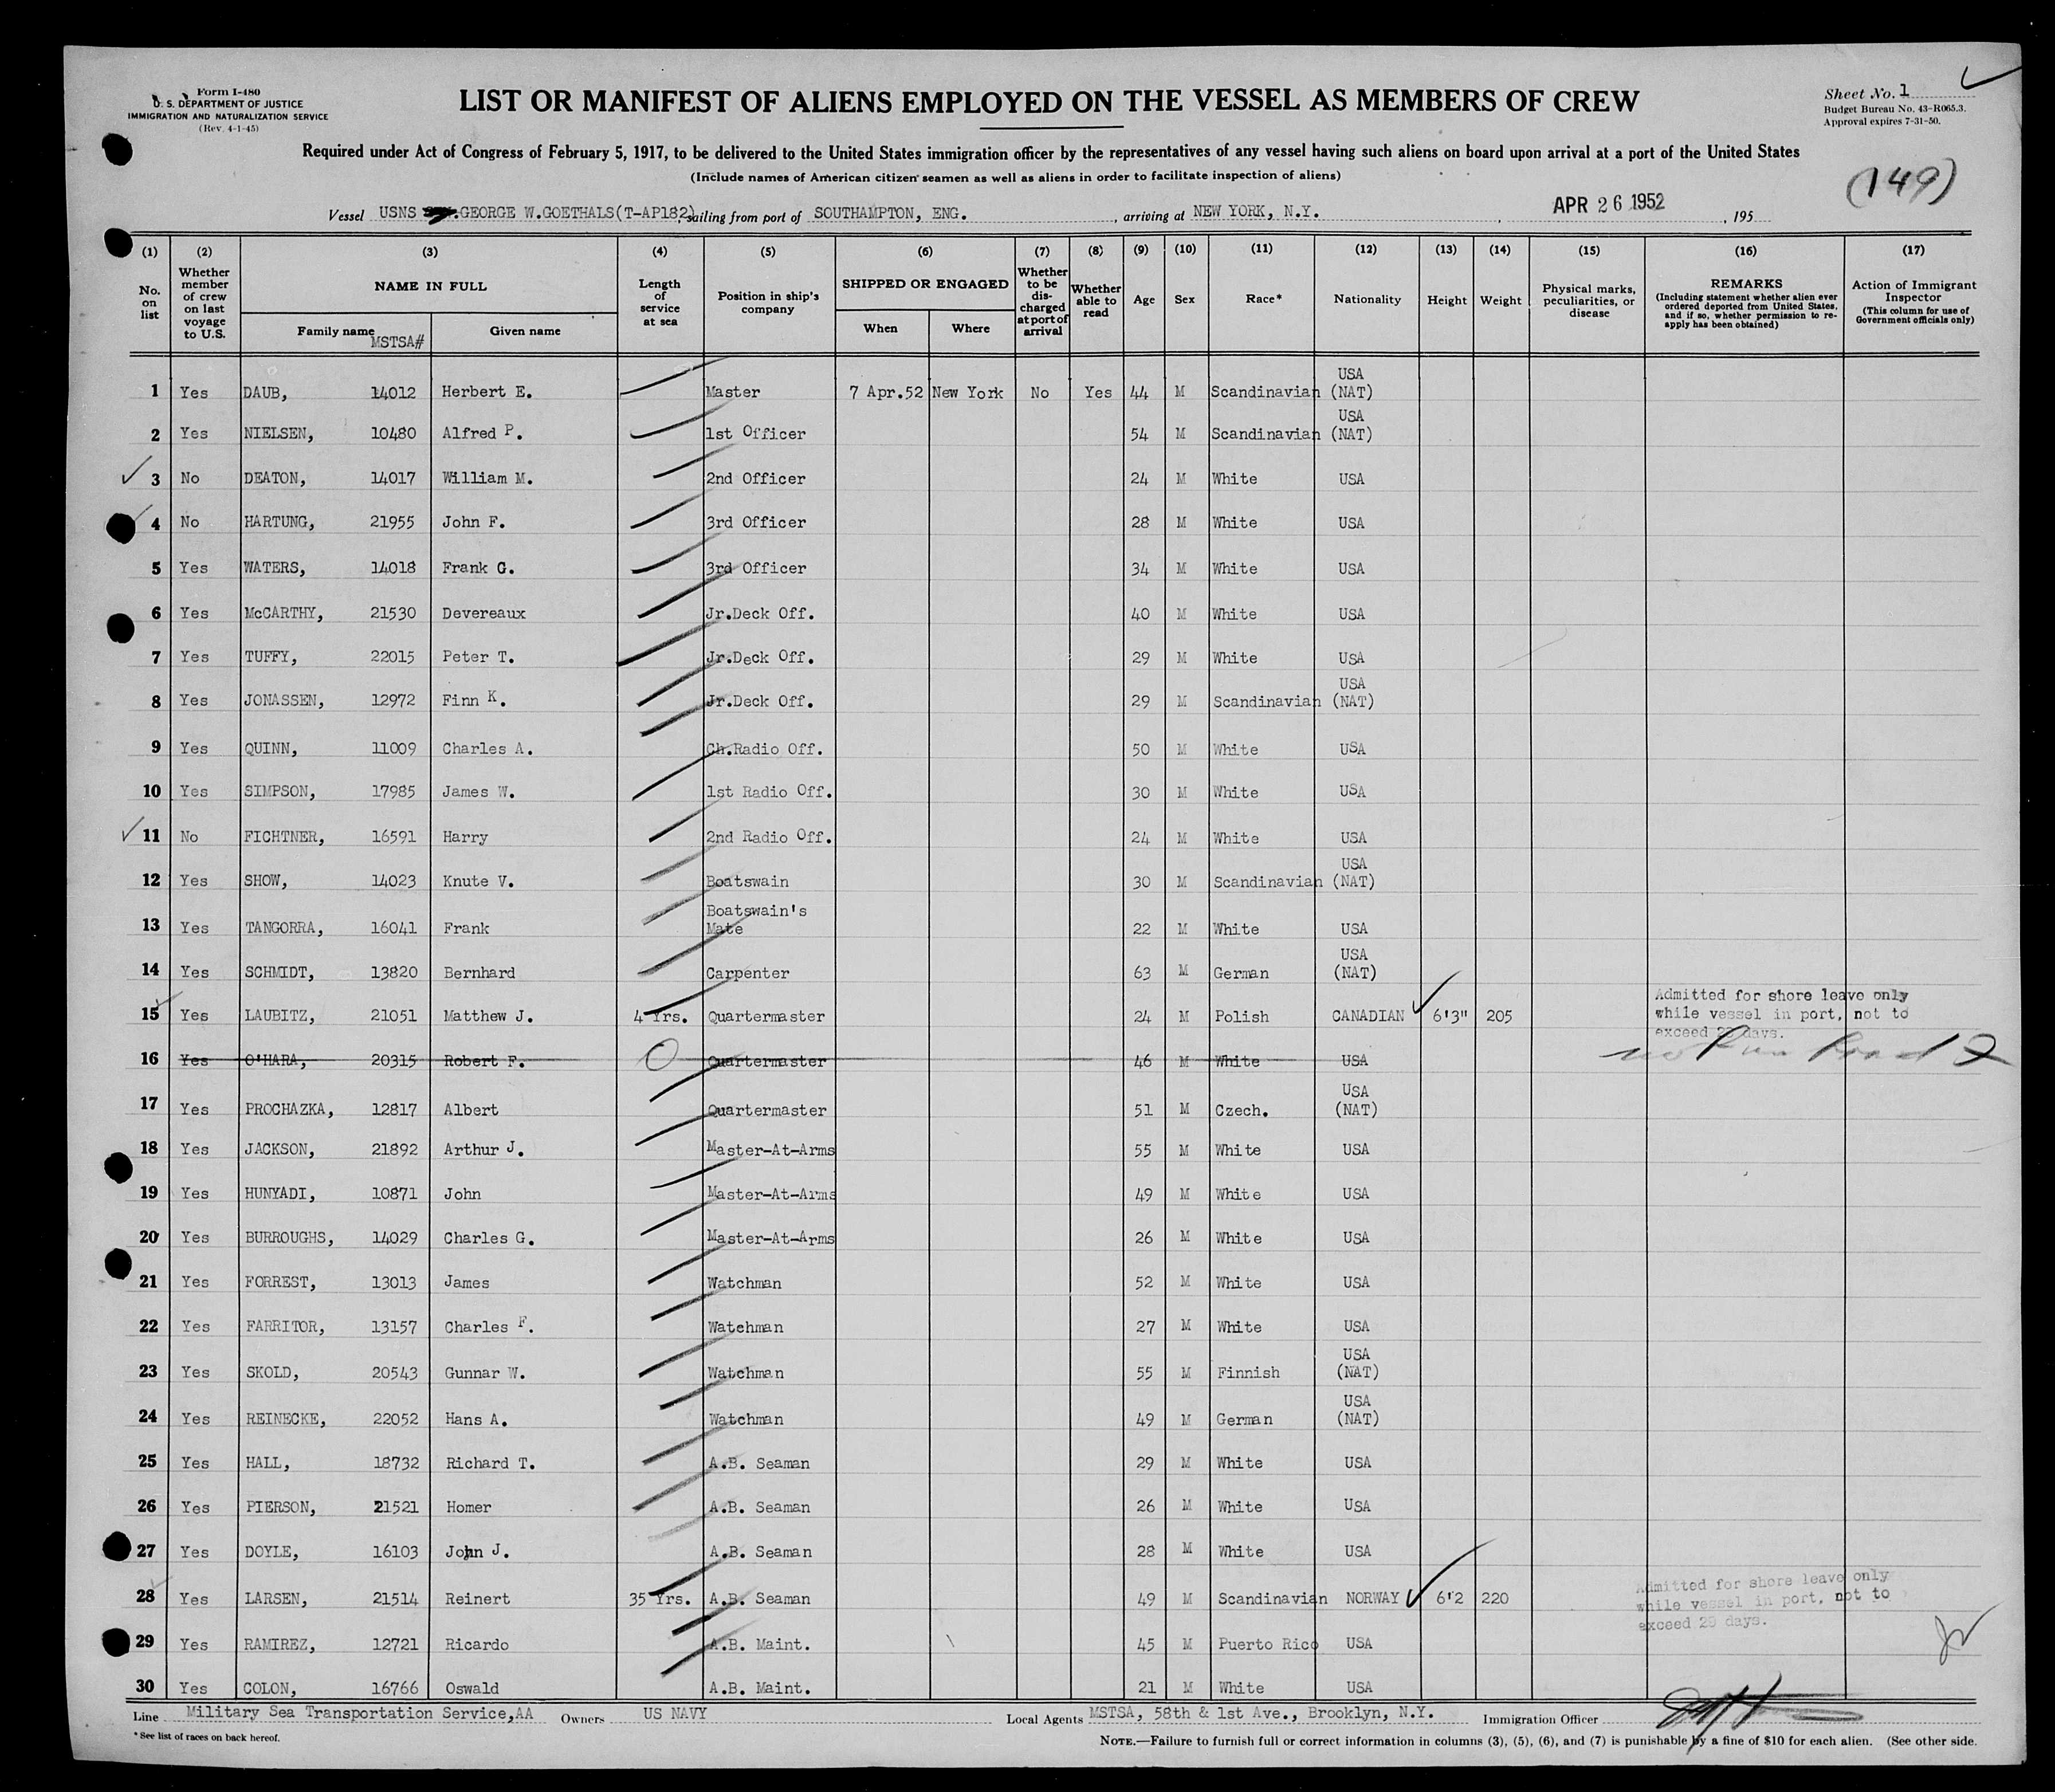 Form I-480
U. S. DEPARTMENT OF JUSTICE
IMMIGRATION AND NATURALIZATION SERVICE
(Rev. 4-1-45)
LIST OR MANIFEST OF ALIENS EMPLOYED ON THE VESSEL AS MEMBERS OF CREW
Sheet No. 1
Budget Bureau No. 43-R065.3.
Approval expires 7-31-50.
Required under Act of Congress of February 5, 1917, to be delivered to the United States immigration officer by the representatives of any vessel having such aliens on board upon arrival at a port of the United States
(Include names of American citizen seamen as well as aliens in order to facilitate inspection of aliens)
(149)
Vessel USNS GEORGE W.GOETHALS(T-AP182), sailing from port of SOUTHAMPTON, ENG., arriving at NEW YORK, N.Y., APR 26 1952, 195
(1) (2) (3) (4) (5) (6) (7) (8) (9) (10) (11) (12) (13) (14) (15) (16) (17)
No. on list
Whether member of crew on last voyage to U.S.
NAME IN FULL
Family name MSTSA#
Given name
Length of service at sea
Position in ship's company
SHIPPED OR ENGAGED
When
Where
Whether to be discharged at port of arrival
Whether able to read
Age
Sex
Race*
Nationality
Height
Weight
Physical marks, peculiarities, or disease
REMARKS
(Including statement whether alien ever ordered deported from United States, and if so, whether permission to re-apply has been obtained)
Action of Immigrant Inspector
(This column for use of Government officials only)
1 Yes DAUB, 14012 Herbert E. Master 7 Apr.52 New York No Yes 44 M Scandinavian USA (NAT)
2 Yes NIELSEN, 10480 Alfred P. 1st Officer 54 M Scandinavian USA (NAT)
3 No DEATON, 14017 William M. 2nd Officer 24 M White USA
4 No HARTUNG, 21955 John F. 3rd Officer 28 M White USA
5 Yes WATERS, 14018 Frank G. 3rd Officer 34 M White USA
6 Yes McCARTHY, 21530 Devereaux Jr.Deck Off. 40 M White USA
7 Yes TUFFY, 22015 Peter T. Jr.Deck Off. 29 M White USA
8 Yes JONASSEN, 12972 Finn K. Jr.Deck Off. 29 M Scandinavian USA (NAT)
9 Yes QUINN, 11009 Charles A. Ch.Radio Off. 50 M White USA
10 Yes SIMPSON, 17985 James W. 1st Radio Off. 30 M White USA
11 No FICHTNER, 16591 Harry 2nd Radio Off. 24 M White USA
12 Yes SHOW, 14023 Knute V. Boatswain 30 M Scandinavian USA (NAT)
13 Yes TANGORRA, 16041 Frank Boatswain's Mate 22 M White USA
14 Yes SCHMIDT, 13820 Bernhard Carpenter 63 M German USA (NAT)
15 Yes LAUBITZ, 21051 Matthew J. 4 Yrs. Quartermaster 24 M Polish CANADIAN 6'3" 205 Admitted for shore leave only while vessel in port, not to exceed 29 days.
16 Yes O'HARA, 20315 Robert F. Quartermaster 46 M White USA
17 Yes PROCHAZKA, 12817 Albert Quartermaster 51 M Czech. USA (NAT)
18 Yes JACKSON, 21892 Arthur J. Master-At-Arms 55 M White USA
19 Yes HUNYADI, 10871 John Master-At-Arms 49 M White USA
20 Yes BURROUGHS, 14029 Charles G. Master-At-Arms 26 M White USA
21 Yes FORREST, 13013 James Watchman 52 M White USA
22 Yes FARRITOR, 13157 Charles F. Watchman 27 M White USA
23 Yes SKOLD, 20543 Gunnar W. Watchman 55 M Finnish USA (NAT)
24 Yes REINECKE, 22052 Hans A. Watchman 49 M German USA (NAT)
25 Yes HALL, 18732 Richard T. A.B. Seaman 29 M White USA
26 Yes PIERSON, 21521 Homer A.B. Seaman 26 M White USA
27 Yes DOYLE, 16103 John J. A.B. Seaman 28 M White USA
28 Yes LARSEN, 21514 Reinert 35 Yrs. A.B. Seaman 49 M Scandinavian NORWAY 6'2 220 Admitted for shore leave only while vessel in port, not to exceed 29 days.
29 Yes RAMIREZ, 12721 Ricardo A.B. Maint. 45 M Puerto Rico USA
30 Yes COLON, 16766 Oswald A.B. Maint. 21 M White USA
Line Military Sea Transportation Service,AA Owners US NAVY Local Agents MSTSA, 58th & 1st Ave., Brooklyn, N.Y. Immigration Officer
* See list of races on back hereof.
NOTE.—Failure to furnish full or correct information in columns (3), (5), (6), and (7) is punishable by a fine of $10 for each alien. (See other side.